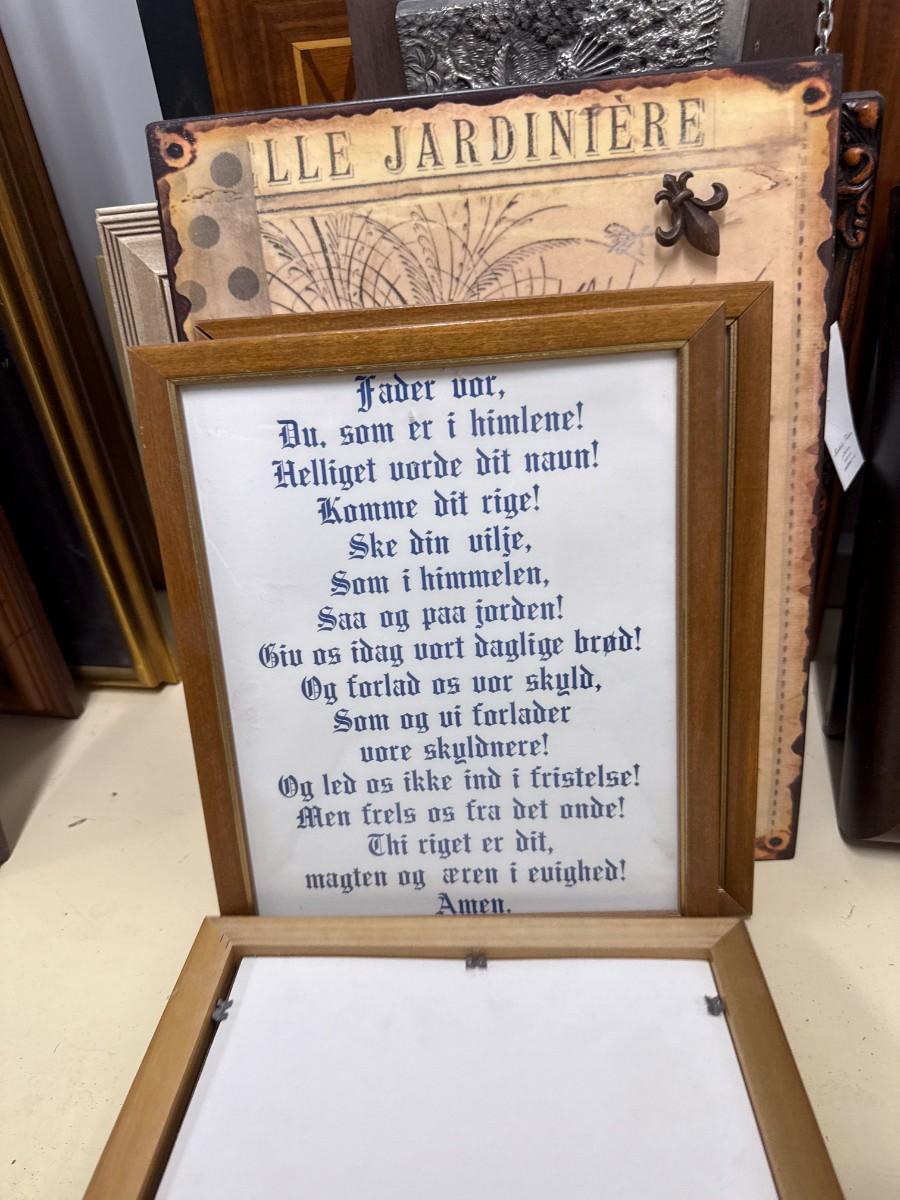 LLE JARDINIÈRE
Fader vor,
Du, som er i himlene!
Helliget vorde dit navn!
Komme dit rige!
Ske din vilje,
Som i himmelen,
Saa og paa jorden!
Giv os idag vort daglige brød!
Og forlad os vor skyld,
Som og vi forlader
vore skyldnere!
Og led os ikke ind i fristelse!
Men frels os fra det onde!
Thi riget er dit,
magten og æren i evighed!
Amen.